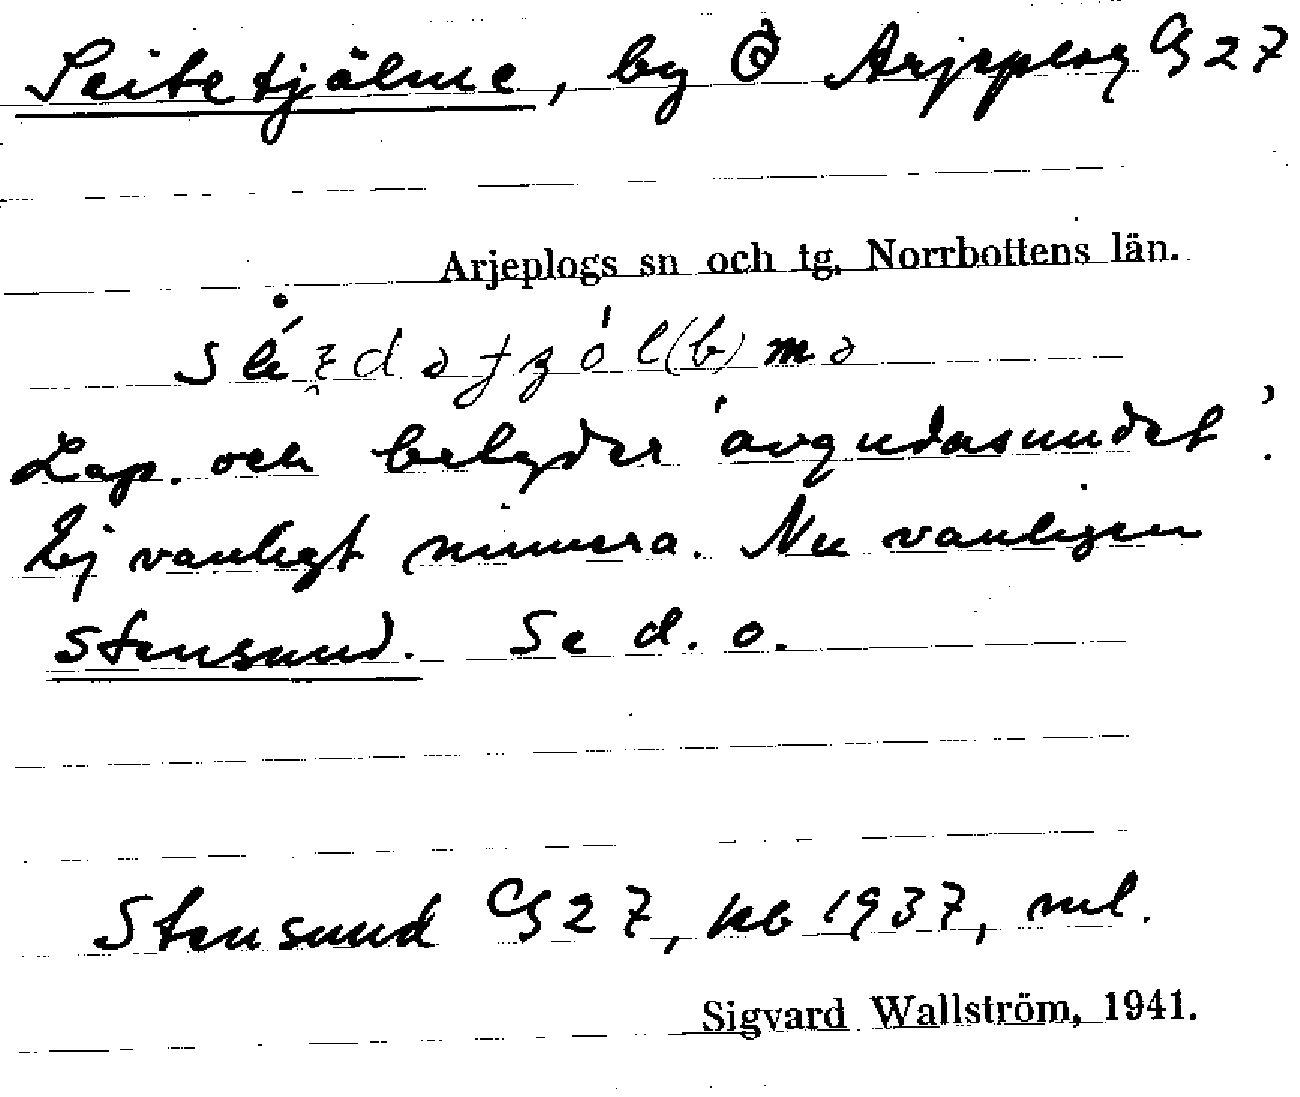 Seitetjälme, by Ö Arjeplog G 27
Arjeplogs sn och tg. Norrbottens län.
Lap. och betyder 'avgudasundet'.
Ej vanligt numera. Nu vanligen
Stensund. Se d. o.
Stensund G 27, kb 1937, ml.
Sigvard Wallström, 1941.